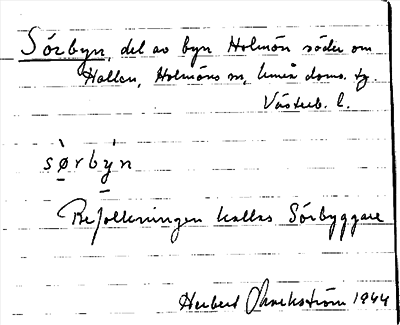 Sörbyn, del av byn Holmön söder om
Hallen, Holmöns sn, Umeå doms. tg.
Västerb. l.
sørbyn
Befolkningen kallas Sörbyggare
Herbert 1944